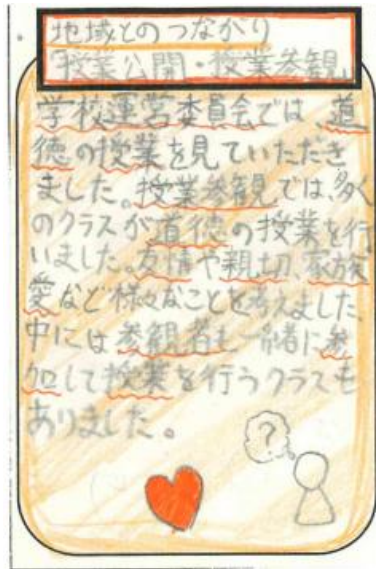 地域とのつながり
「授業公開・授業参観」
学校運営委員会では、道
徳の授業を見ていただき
ました。授業参観では、多く
のクラスが道徳の授業を行
いました。友情や親切、家族
愛など様々なことを考えました。
中には参観者も一緒に参
加して授業を行うクラスも
ありました。
?